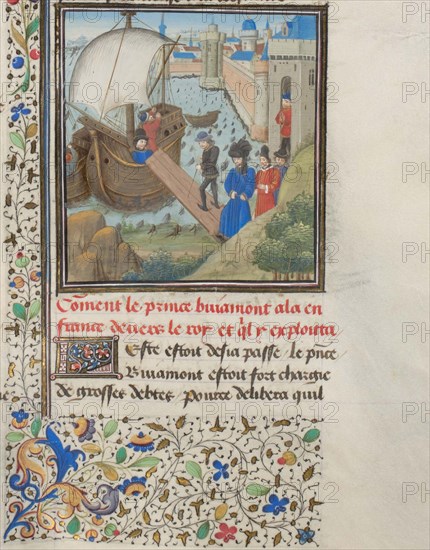 Coment le prince buiamont ala en
france deuers le roy et ql y exploitta
Este estoit desia passe le pnce
Buiamont estoit fort chargie
de grosses debtes pource delibera quil
PHOTO12